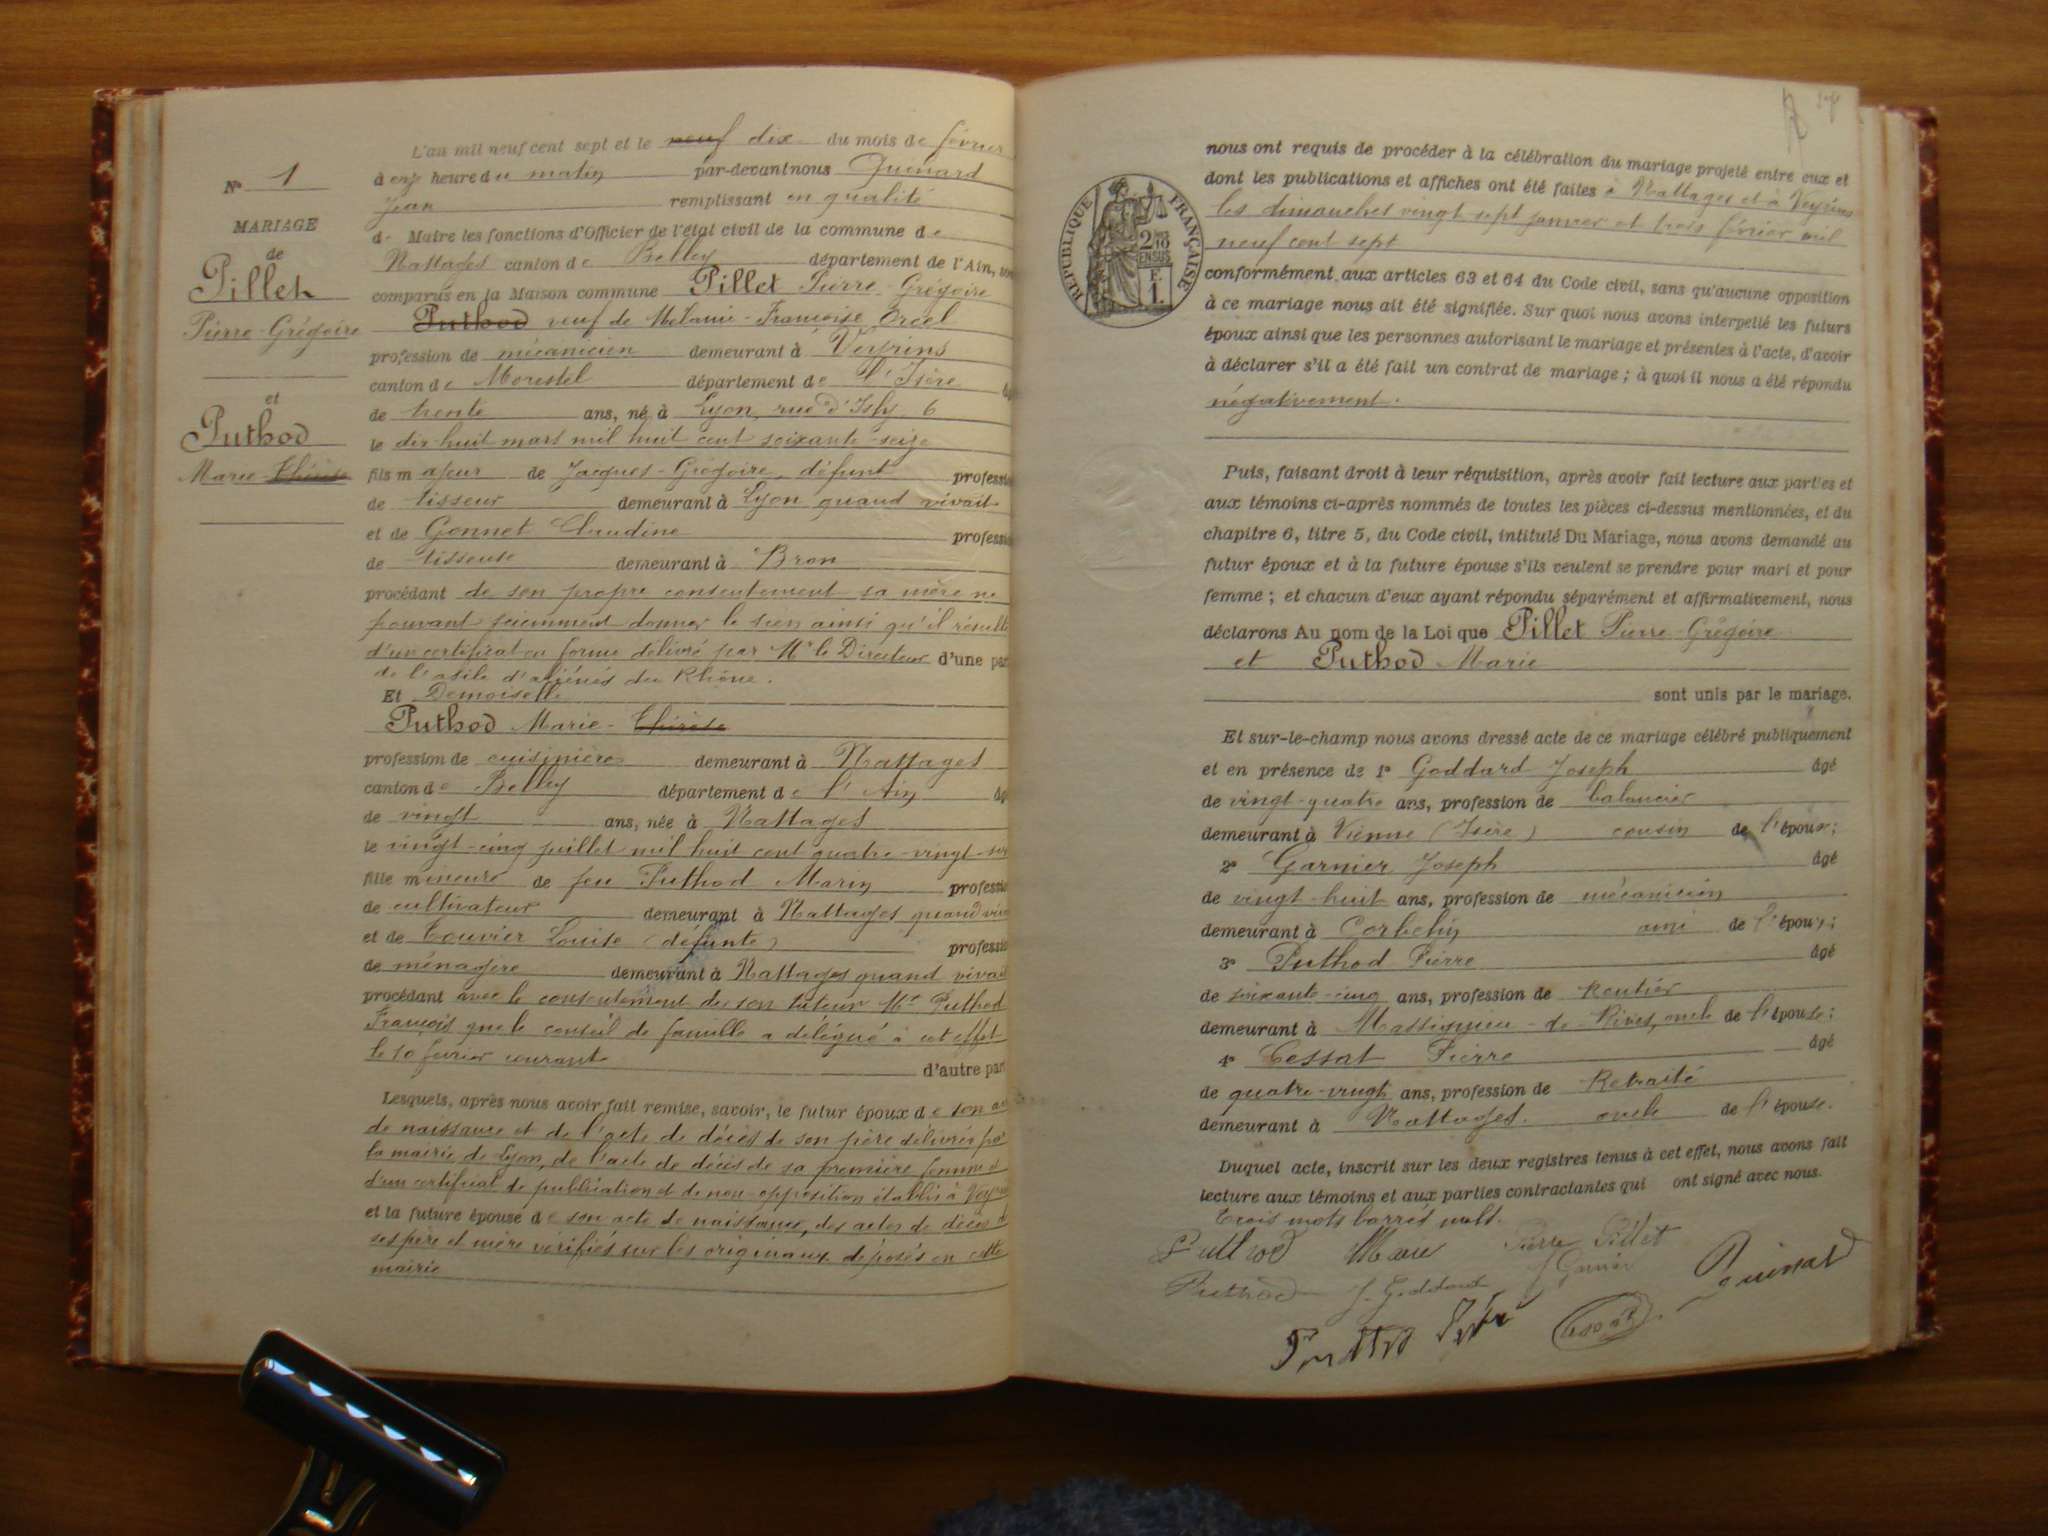 N° 1
MARIAGE
de
Pillet
Pierre-Grégoire
et
Puthod
Marie-Thérèse
L'an mil neuf cent sept et le neuf dix du mois de février
à onze heure du matin par-devant nous Quinard
Jean remplissant en qualité
de Maire les fonctions d'Officier de l'état civil de la commune de
Nattages canton de Belley département de l'Ain, sont
comparus en la Maison commune Pillet Pierre-Grégoire
Puthod veuf de Mélanie-Françoise
profession de mécanicien demeurant à Veyrins
canton de Morestel département de l'Isère âgé
de trente ans, né à Lyon, rue d' 6
le dix huit mars mil huit cent soixante-seize
fils majeur de Jacques-Grégoire, défunt profession
de tisseur demeurant à Lyon quand vivait
et de Gonnet Claudine profession
de tisseuse demeurant à Bron
procédant de son propre consentement sa mère ne
pouvant sciemment donner le sien ainsi qu'il résulte
d'un certificat en forme délivré par Mr le Directeur d'une part
de l'asile d'aliénés du Rhône.
Et Demoiselle
Puthod Marie-Thérèse
profession de cuisinière demeurant à Nattages
canton de Belley département de l'Ain âgé
de vingt ans, née à Nattages
le vingt-cinq juillet mil huit cent quatre-vingt-six
fille mineure de feu Puthod Marin profession
de cultivateur demeurant à Nattages quand vivait
et de Touvier Louise (défunte) profession
de ménagère demeurant à Nattages quand vivait
procédant avec le consentement de son tuteur Mr Puthod
François que le conseil de famille a délégué à cet effet
le 10 février courant d'autre part
Lesquels, après nous avoir fait remise, savoir, le futur époux de son acte
de naissance et de l'acte de décès de son père délivrés par
la mairie de Lyon, de l'acte de décès de sa première femme
d'un certificat de publication et de non-opposition établi à Veyrins
et la future épouse de son acte de naissance, des actes de décès de
ses père et mère vérifiés sur les originaux déposés en cette
mairie
RÉPUBLIQUE FRANÇAISE
2/10 EN SUS
F. 1.
nous ont requis de procéder à la célébration du mariage projeté entre eux et
dont les publications et affiches ont été faites à Nattages et à Veyrins
les dimanches vingt-sept janvier et trois février mil
neuf cent sept
conformément aux articles 63 et 64 du Code civil, sans qu'aucune opposition
à ce mariage nous ait été signifiée. Sur quoi nous avons interpellé les futurs
époux ainsi que les personnes autorisant le mariage et présentes à l'acte, d'avoir
à déclarer s'il a été fait un contrat de mariage ; à quoi il nous a été répondu
négativement.
Puis, faisant droit à leur réquisition, après avoir fait lecture aux parties et
aux témoins ci-après nommés de toutes les pièces ci-dessus mentionnées, et du
chapitre 6, titre 5, du Code civil, intitulé Du Mariage, nous avons demandé au
futur époux et à la future épouse s'ils veulent se prendre pour mari et pour
femme ; et chacun d'eux ayant répondu séparément et affirmativement, nous
déclarons Au nom de la Loi que Pillet Pierre-Grégoire
et Puthod Marie
sont unis par le mariage.
Et sur-le-champ nous avons dressé acte de ce mariage célébré publiquement
et en présence de 1° Goddard Joseph âgé
de vingt-quatre ans, profession de balancier
demeurant à Vienne (Isère) cousin de l'époux;
2° Garnier Joseph âgé
de vingt-huit ans, profession de mécanicien
demeurant à Corbelin ami de l'époux;
3° Puthod Pierre âgé
de soixante-cinq ans, profession de Rentier
demeurant à Massignieu-de-Rives, oncle de l'épouse;
4° Cessat Pierre âgé
de quatre-vingt ans, profession de Retraité
demeurant à Nattages. oncle de l'épouse.
Duquel acte, inscrit sur les deux registres tenus à cet effet, nous avons fait
lecture aux témoins et aux parties contractantes qui ont signé avec nous.
Trois mots barrés nuls.
Puthod Marie Pierre Pillet
Puthod J. Goddard J Garnier Quinard
Puthod Pierre Cessat